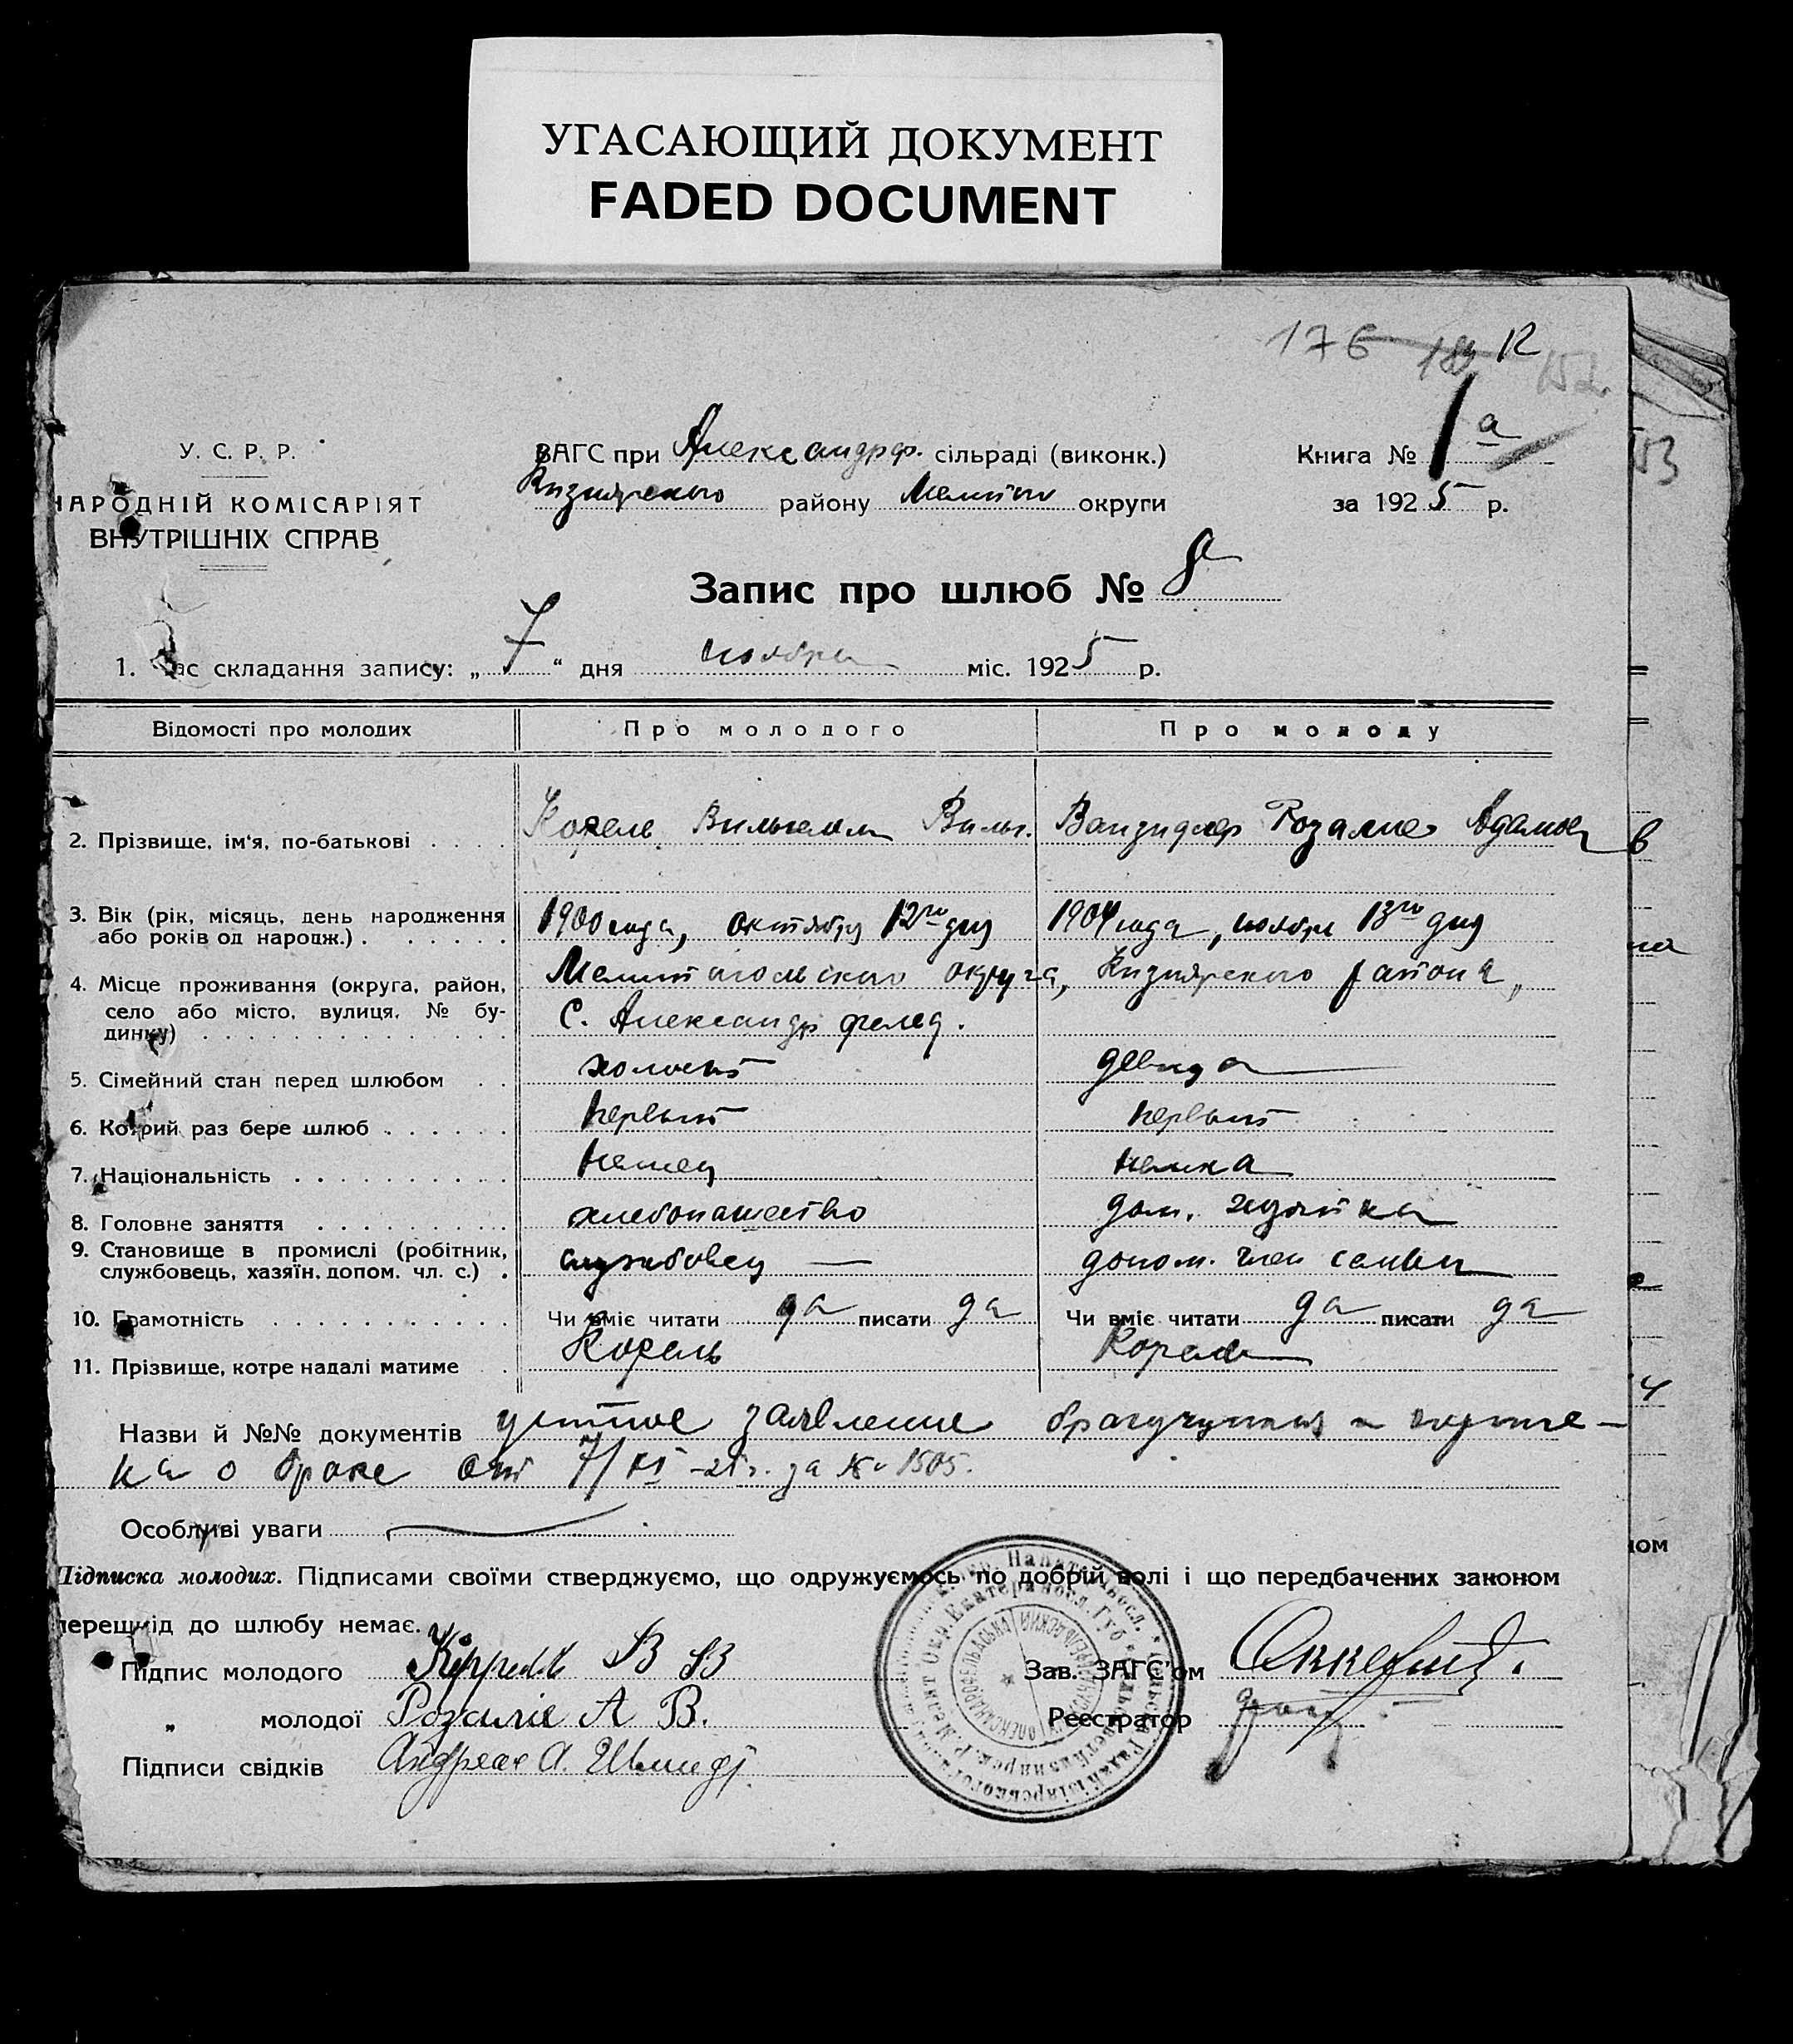 УГАСАЮЩИЙ ДОКУМЕНТ
FADED DOCUMENT
176 12
152
У. С. Р. Р.
НАРОДНІЙ КОМІСАРІЯТ
ВНУТРІШНІХ СПРАВ
ЗАГС при Александрф. сільраді (виконк.)
Кизиярского району Мелитоп округи
Книга № 1 а
за 1925 р.
53
Запис про шлюб №
1. Час складання запису: „ 7 “ дня ноября міс. 1925 р.
Відомості про молодих Про молодого Про молоду
2. Прізвище, ім'я, по-батькові . . . . Корель Вильгельм Вильг. Розалие Адамов
3. Вік (рік, місяць, день народження
або років од народж.) . . . . . . 1900 года, октября 12го дня 1904 года, ноября 13го дня
4. Місце проживання (округа, район,
село або місто, вулиця, № бу-
динку) Мелитопольского округа, Кизиярского района,
С. Александрфелед.
5. Сімейний стан перед шлюбом . . холостй девица
6. Котрий раз бере шлюб . . . . . . первый первый
7. Національність . . . . . . . . . . немец немка
8. Головне заняття . . . . . . . . . хлебопашество дом. хозяйка
9. Становище в промислі (робітник,
службовець, хазяїн, допом. чл. с.) . службовец допом. член семьи
10. Грамотність . . . . . . . . . . . Чи вміє читати да писати да Чи вміє читати да писати да
11. Прізвище, котре надалі матиме . Корель Корель
Назви й №№ документів устное заявление брачущихся и
ка о браке от 7/XI -25 г. за № 1505.
Особливі уваги
Підписка молодих. Підписами своїми стверджуємо, що одружуємось по добрій волі і що передбачених законом
перешкід до шлюбу немає.
Підпис молодого В В Зав. ЗАГС'ом
„ молодої Розалие А В. Реєстратор
Підписи свідків Андреас А. Шмидт